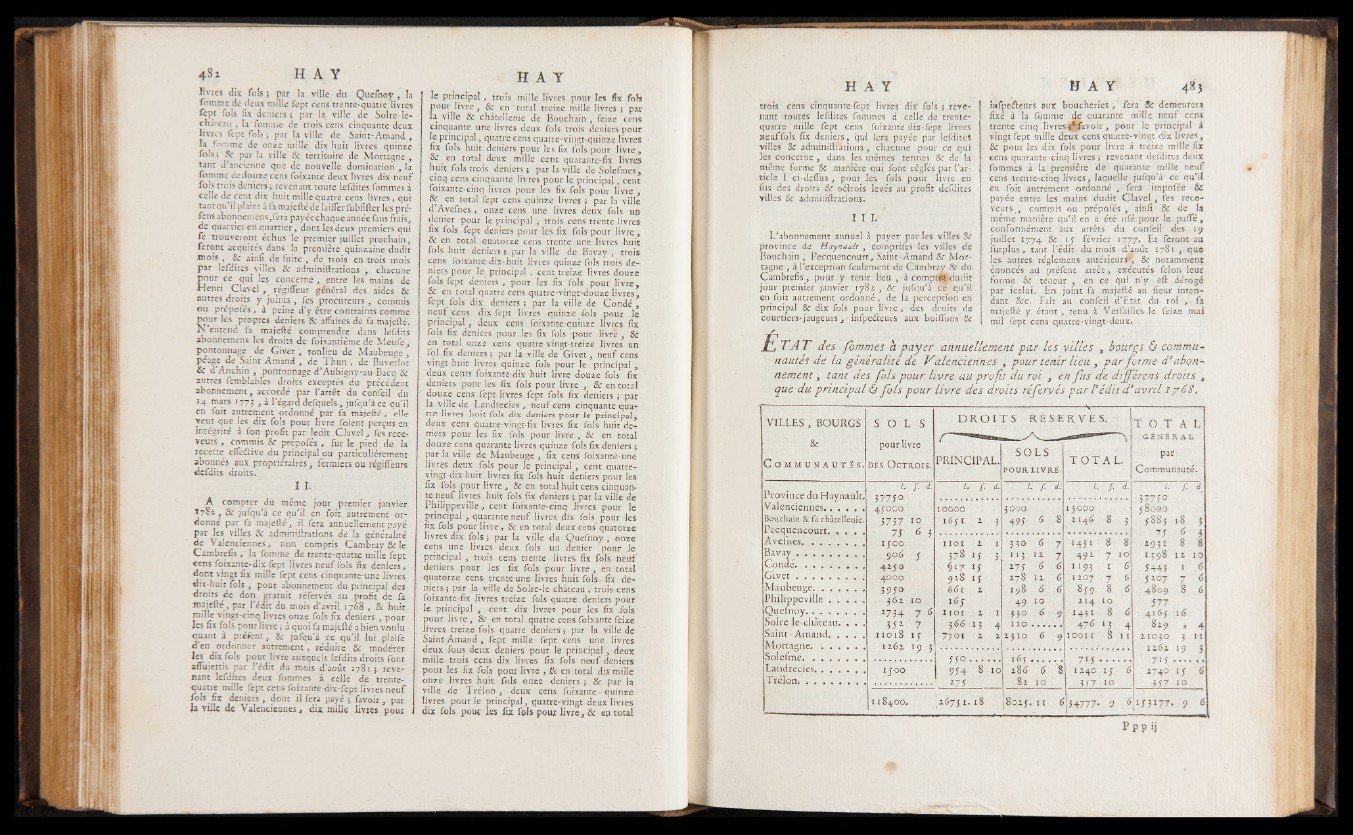 482 HAY HAY
livres dix sols ; par la ville du Quesnoy, la
somme de deux mille sept cens trente-quatre livres
sept sols six deniers ; par la ville de Solre-le-
château, la somme de trois cens cinquante deux
livres sept sols ; par la ville de Saint-Amand,
la somme de onze mille dix huit livres quinze
sols ; & par la ville & territoire de Mortagne,
tant d'ancienne que de nouvelle domination, la
somme de douze cens soixante deux livres dix-neuf
sols trois deniers ; revenant toute lesdites sommes à
celle de cent dix huit mille quatre cens livres, qui
tant qu'il plaira à sa majesté de laisser subsister les pré-
sens abonnemens, sera payée chaque année sans frais,
de quartier en quartier, dont les deux premiers qui
se trouveront échus le premier juillet prochain,
seront acquités dans la première quinzaine dudit
mois, & ainsi de suite, de trois en trois mois
par lesdites villes & administrations, chacune
pour ce qui les concerne, entre les mains de
Henri Clavel, régisseur général des aides &
autres droits y joints, ses procureurs, commis
ou préposés, à peine d'y être contraints comme
pour les propres deniers & affaires de sa majesté.
N'entend sa majesté comprendre dans lesdits
abonnemens les droits de soixantième de Meuse,
pontonnage de Givet, tonlieu de Maubeuge,
péage de Saint Amand, de Thun, de Buverlot
& d'Anchin, pontonnage d'Aubigny-au-Bacq &
autres semblables droits exceptés du précédent
abonnement, accordé par l'arrêt du conseil du
14 mars 1773, à l'égard desquels, jusqu'à ce qu'il
en soit autrement ordonné par sa majesté, elle
veut que les dix sols pour livre soient perçus en
intégrité à son profit par ledit Clavel, ses rece-
veurs, commis & préposés, sur le pied de la
recette effective du principal ou particulièrement
abonnés aux propriétaires, fermiers ou régisseurs
desdits droits.
II.
A compter du même jour premier janvier
1782, & jusqu'à ce qu'il en soit autrement or-
donné par sa majesté, il sera annuellement payé
par les villes & administrations de la généralité
de Valenciennes, non compris Cambray & le
Cambresis, la somme de trente-quatre mille sept
cens soixante-dix sept livres neuf sols six deniers,
dont vingt six mille sept cens cinquante-une livres
dix-huit sols, pour abonnement du principal des
droits de don gratuit réservés au profit de sa
majesté, par l'édit du mois d'avril 1768, & huit
mille vingt-cinq livres onze sols six deniers, pour
les six sols pour livre ; à quoi sa majesté a bien voulu
quant à présent, & jusqu'à ce qu'il lui plaise
d'en ordonner autrement, réduire & modérer
les dix sols pour livre auxquels lesdits droits sont
assujettis par l'édit du mois d'août 1781 ; reve-
nant lesdites deux sommes à celle de trente-
quatre mille sept cens soixante-dix-sept livres neuf
sols six deniers, dont il sera payé ; savoir, par
la ville de Valenciennes, dix mille livres pour
le principal, trois mille livres pour les six sols
pour livre, & en total treize mille livres ; par
la ville & châtellenie de Bouchain, seize cens
cinquante une livres deux sols trois deniers pour
le principal, quatre cens quatre-vingt-quinze livres
six sols huit deniers pour les six sols pour livre,
& en total deux mille cent quarante-six livres
huit sols trois deniers ; par la ville de Solesmes,
cinq cens cinquante livres pour le principal, cent
soixante-cinq livres pour les six sols pour livre,
& en total sept cens quinze livres ; par la ville
d'Avesnes, onze cens une livres deux sols un
denier pour le principal, trois cens trente livres
six sols sept deniers pour les six sols pour livre,
& en total quatorze cens trente une livres huit
sols huit deniers ; par la ville de Bavay, trois
cens soixante dix-huit livres quinze sols trois de-
niers pour le principal, cent treize livres douze
sols sept deniers, pour les six sols pour livre,
& en total quatre cens quatre-vingt-douze livres,
sept sols dix deniers ; par la ville de Condé,
neuf cens dix sept livres quinze sols pour le
principal, deux cens soixante-quinze livres six
sols six deniers pour les six sols pour livre, &
en total onze cens quatre vingt-treize livres un
sol six deniers ; par la ville de Givet, neuf cens
vingt huit livres quinze sols pour le principal,
deux cens soixante-dix huit livre douze sols six
deniers pour les six sols pour livre, & en total
douze cens sept livres sept sols six deniers ; par
la ville de Landrecies, neuf cens cinquante qua-
tre livres huit sols dix deniers pour le principal,
deux cens quatre-vingt-six livres six sols huit de-
niers pour les six sols pour livre, & en total
douze cens quarante livres quinze sols six deniers ;
par la ville de Maubeuge, six cens soixante-une
livres deux sols pour le principal, cent quatre-
vingt-dix-huit livres six sols huit deniers pour les
six sols pour livre, & en total huit cens cinquan-
te neuf livres huit sols six deniers ; par la ville de
Philippeville, cent soixante-cinq livres pour le
principal, quarante neuf livres dix sols pour les
six sols pour livre, & en total deux cens quatorze
livres dix sols ; par la ville du Quesnoy, onze
cens une livres deux sols un denier pour le
principal, trois cens trente livres six sols neuf
deniers pour les six sols pour livre, en total
quatorze cens trente une livres huit sols six de-
niers ; par la ville de Solre-le château, trois cens
soixante-six livres treize sols quatre deniers pour
le principal, cent dix livres pour les six sols
pour livre, & en total quatre cens soixante seize
livres treize sols quatre deniers ; par la ville de
Saint-Amand, sept mille sept cens une livres
deux sous deux deniers pour le principal, deux
mille trois cens dix livres six sols neuf deniers
pour les six sols pour livre, & en total dix mille
onze livres huit sols onze deniers ; & par la
ville de Trélon, deux cens soixante-quinze
livres pour le principal, quatre-vingt deux livres
dix sols pour les six sols pour livre, & en total
HAY HAY 483
trois cens cinquante-sept livres dix sols ; reve-
nant toutes lesdites sommes à celle de trente-
quatre mille sept cens soixante dix-sept livres
neuf sols six deniers, qui sera payée par lesdites
villes & administrations, chacune pour ce qui
les concerne, dans les mêmes termes & de la
même forme & manière qui sont réglés par l'ar-
ticle I ci-dessus, pour les sols pour livre en
sus des droits & octrois levés au profit desdites
villes & administrations.
III.
L'abonnement annuel à payer par les villes &
province de Haynault, comprises les villes de
Bouchain, Pecquencourt, Saint-Amand & Mor-
tagne, à l'exception seulement de Cambray & du
Cambresis, pour y tenir lieu, à compter dudit
jour premier janvier 1782, & jusqu'à ce qu'il
en soit autrement ordonné, de la perception en
principal & dix sols pour livre, des droits de
courtiers-jaugeurs, inspecteurs aux boissons &
inspecteurs aux boucheries, sera & demeurera
fixé à la somme de quarante mille neuf cens
trente cinq livres ; savoir, pour le principal à
vingt sept mille deux cens quatre-vingt dix livres,
& pour les dix sols pour livre à treize mille six
cens quarante-cinq livres ; revenant desdites deux
sommes à la première de quarante mille neuf
cens trente-cinq livres, laquelle jusqu'à ce qu'il
en soit autrement ordonné, sera imposée &
payée entre les mains dudit Clavel, ses rece-
veurs, commis ou préposés, ainsi & de la
même manière qu'il en a été usé pour le passé,
conformément aux arrêts du conseil des 19
juillet 1774 & 15 février 1777. Et seront au
surplus, tant l'édit du mois d'août 1781, que
les autres réglemens antérieurs, & notamment
énoncés au présent arrêt, exécutés selon leur
forme & teneur, en ce qui n'y est dérogé
par icelui. En joint sa majesté au sieur inten-
dant &c. Fait au conseil d'Etat du roi, sa
majesté y étant, tenu à Versailles le seize mai
mil sept cens quatre-vingt-deux.
ÉTAT des sommes à payer annuellement par les villes, bourgs & commu-
nautés de la généralité de Valenciennes, pour tenir lieu, par forme d'abon-
nement, tant des sols pour livre au profit du roi, en sus de différens droits,
que du principal & sols pour livre des droits réservés par l'édit d'avril 1768.
VILLES, BOURGS & COMMUNAUTÉS. | SOLS pour livre DES OCTROIS. | DROITS RÉSERVÉS. | TOTAL GÉNÉRAL par Communauté.
PRINCIPAL. | SOLS POUR LIVRE. | TOTAL.
l. s. d. | l. s. d. | l. s. d. | l. s. d. | l. s. d.
Province du Haynault. | 37750 | ..... | ..... | ..... | 37750
Valenciennes...... | 45000 | 10000 | 3000 | 13000 | 58000
Bouchain & sa châtellenie. | 3737 10 | 1651 2 3 | 495 6 8 | 2146 8 3 | 5883 18 3
Pecquencourt..... | 75 6 3 | ..... | ..... | ..... | 75 6 3
Avesnes........ | 1500 | 1101 2 1 | 330 6 7 | 1431 8 8 | 2931 8 8
Bavay......... | 906 5 | 378 15 3 | 113 12 7 | 492 7 10 | 1398 12 10
Condé......... | 4250 | 917 15 | 275 6 6 | 1193 1 6 | 5443 1 6
Givet......... | 4000 | 928 15 | 278 12 6 | 1207 7 6 | 5207 7 6
Maubeuge....... | 3950 | 661 2 | 198 6 6 | 859 8 6 | 4809 8 6
Philippeville..... | 362 10 | 165 | 49 10 | 214 10 | 577
Quesnoy........ | 2734 7 6 | 1101 2 1 | 330 6 9 | 1431 8 6 | 4165 16
Solre le-château.... | 352 7 | 366 13 4 | 110...... | 476 13 4 | 829 „ 4
Saint-Amand..... | 11018 15 | 7701 2 2 | 2310 6 9 | 10011 8 11 | 21030 3 11
Mortagne....... | 1262 19 3 | ..... | ..... | ..... | 1262 19 3
Solesme........ | | 550...... | 165...... | 715...... | 715......
Landrecies....... | 1500 | 954 8 10 | 286 6 8 | 1240 15 6 | 2740 15 6
Trélon......... | ..... | 275 | 82 10 | 357 10 | 357 10
118400. | 26751. 18 | 8025. 11 6 | 34777. 9 6 | 153177. 9 6
Pppij